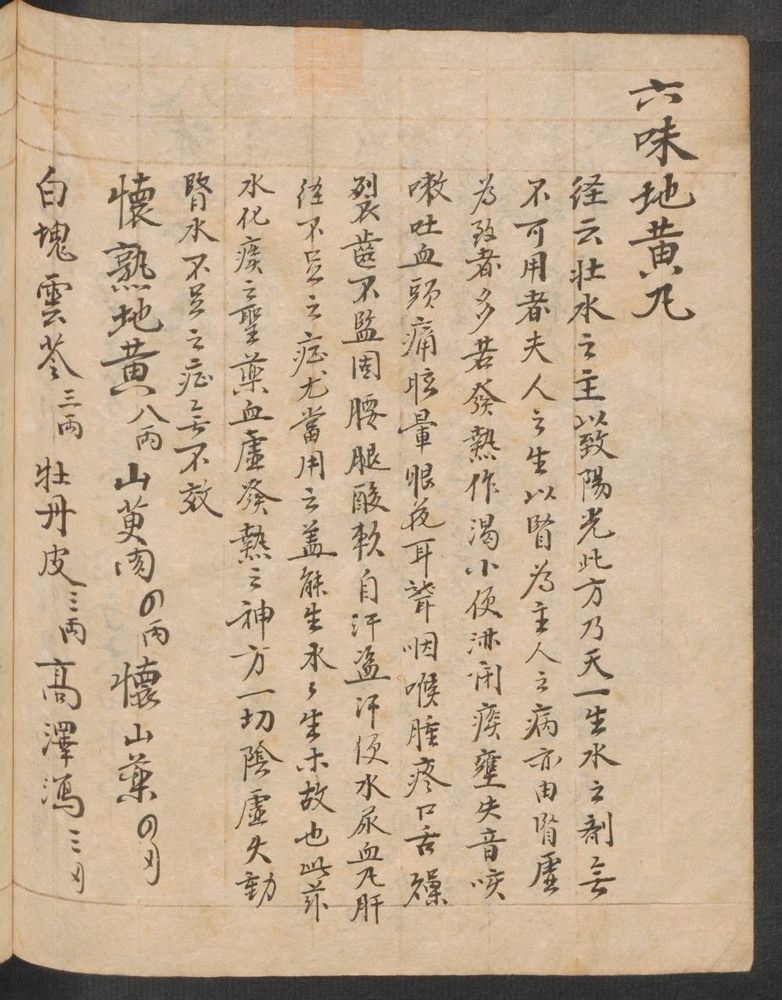 六味地黄凡
経云壮水之主以致陽光此方乃天一生水之剤無
不可用者夫人之生以腎為主人之病亦由腎虛
為致者多若發熱作渴小便淋闭痰壅失音咳
嗽吐血頭痛眩暈眼花耳聋咽喉腫疼口舌燥
裂齒不監固腰腿酸軟自汗盗汗便水尿血凡肝
経不足之症尤當用之盖能生水々生木故也此药
水化痰之聖藥血虛發熱之神方一切陰虛火動
腎水不足之症無不效
懷熟地黄八両 山萸肉四両 懷山藥四刄
白塊雲苓三両 牡丹皮三両 高澤瀉三刄